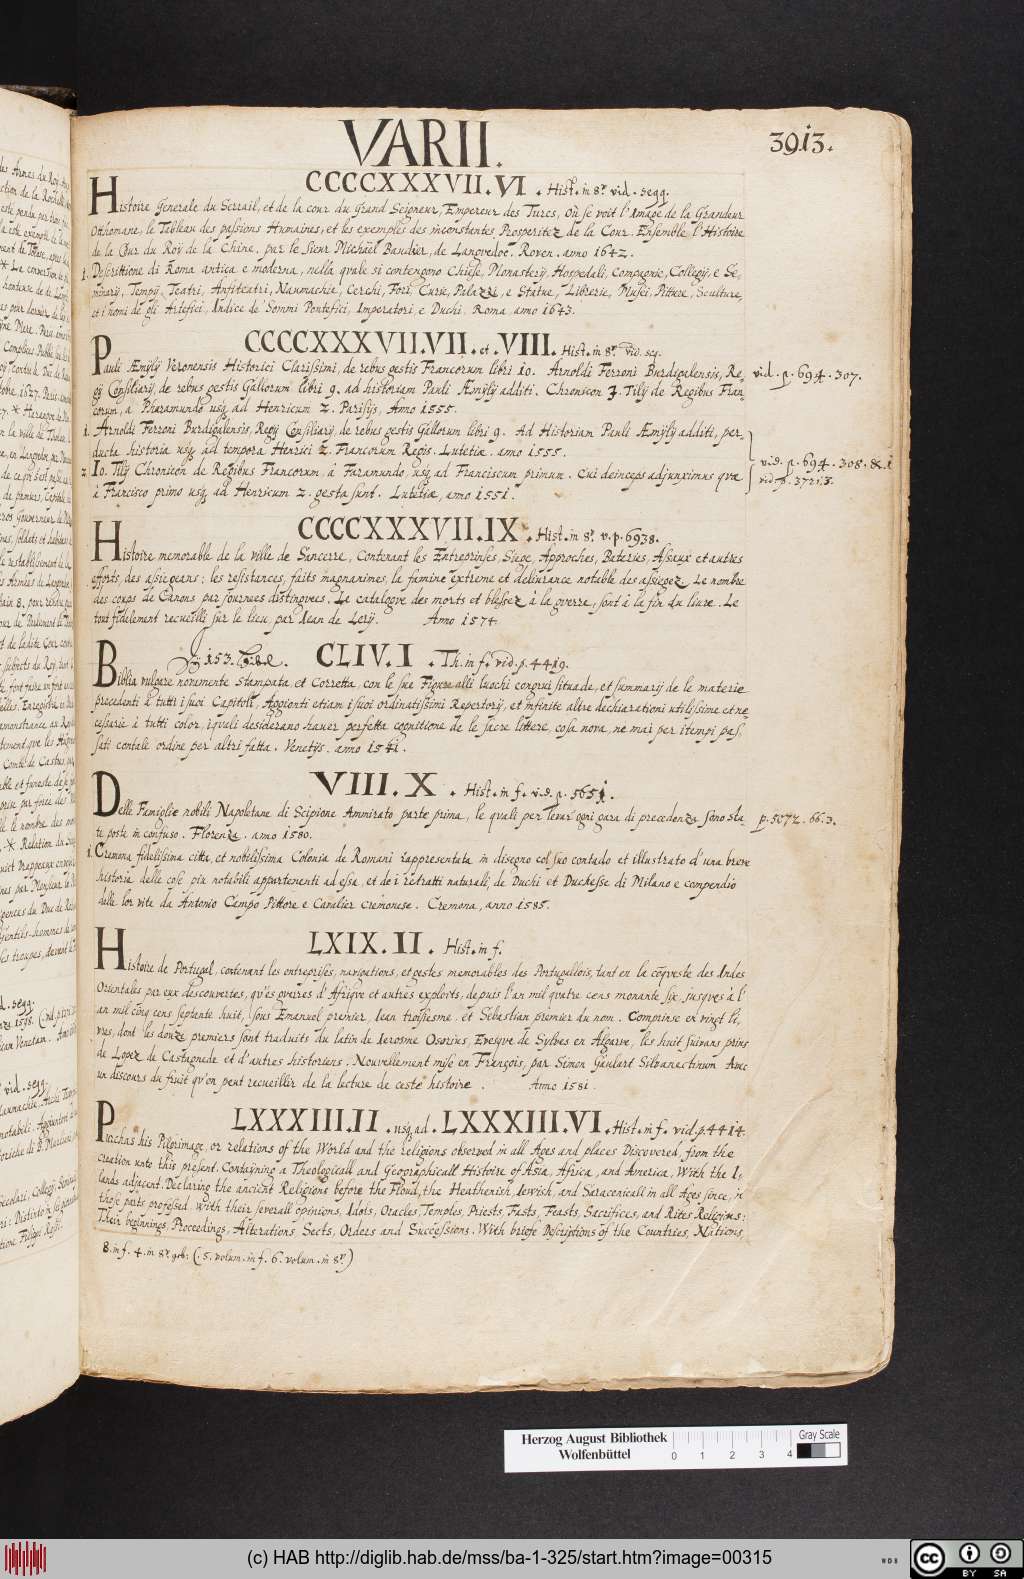 VARII.
3913.
CCCCXXXVII.VI. Hist. in 8º. vid. segg.
Histoire Generale du Serrail, et de la cour du Grand Seigneur, Empereur des Turcs, Où se voit l'Image de la Grandeur
Ottomane, le Tableau des passions Humaines, et les exemples des inconstantes Prosperitez de la Cour. Ensemble l'Histoire
de la Cour du Roy de la Chine, par le Sieur Michael Baudier, de Langvedoc. Roven. anno 1642.
1. Descrittione di Roma antica e moderna, nella quale si contengono Chiese, Monastery, Hospedali, Compagnie, Collegij, e Se,
minary, Tempij, Teatri, Anfiteatri, Naumachie, Cerchi, Fori, Curie, Palazzi, e Statue, Librerie, Musei, Pitture, Sculture,
et i nomi de gli Artefici, Indice de' Sommi Pontefici, Imperatori e Duchi. Roma anno 1643.
CCCCXXXVII.VII. et. VIII. Hist. in 8º. vid. seq.
Pauli Æmylij Veronensis Historici Clarissimi, de rebus gestis Francorum libri 10. Arnoldi Ferroni Burdigalensis, Re, vid. p. 694. 307.
gij Consiliarij, de rebus gestis Gallorum libri 9. ad historiam Pauli Æmylij additi. Chronicon J. Tilij de Regibus Fran,
corum, a Pharamundo usq. ad Henricum 2. Parisijs, Anno 1555.
1. Arnoldi Ferroni Burdigalensis, Regij Consiliarij, de rebus gestis Gallorum libri 9. Ad Historiam Pauli Æmylij additi, per,
ducta historia usq. ad tempora Henrici 2. Francorum Regis. Lutetiæ. anno 1555.
2. Io. Tilij Chronicon de Regibus Francorum, à Faramundo usq. ad Franciscum primum. Cui deinceps adjunximus quæ vid. p. 694. 308. & 1
à Francisco primo usq. ad Henricum 2. gesta sunt. Lutetiæ, anno 1551. vid. p. 3721.3.
CCCCXXXVII.IX. Hist. in 8º. v. p. 6938.
Histoire memorable de la ville de Sancerre, Contenant les Entreprinses, Siege, Approches, Bateries, Assaux et autres
efforts, des assiegeans: les resistances, faits magnanimes, la famine extreme et delivrance notable des assiegez. Le nombre
des coups de Canons par journees distinguees. Le catalogve des morts et blessez à la guerre, sont à la fin du livre. Le
tout fidelement recueilli sur le lieu par Jean de Lery. Anno 1574
CLIV.I. Th. in f. vid. p. 4419.
Biblia vulgare novamente stampata et Corretta, con le sue Figure alli luochi congrui situade, et summarij de le materie
precedenti à tutti i suoi Capitoli, Aggionti etiam i suoi ordinatissimi Repertorij, et infinite altre dechiarationi utilissime et ne
cessarie à tutti color, iquali desiderano haver perfetta cognitione de le sacre littere, cosa nova, ne mai per i tempi pas,
sati contale ordine per altri fatta. Venetijs. anno 1541.
VIII.X. Hist. in f. v.d. p. 5651.
Delle Famiglie nobili Napoletane di Scipione Ammirato parte prima, le quali per levar ogni gara di precedenza sono sta p. 5072. 66.3.
te poste in confuso. Florenza. anno 1580.
1. Cremona fidelissima citta, et nobilissima Colonia de Romani rappresentata in disegno col suo contado et illustrato d'una breve
historia delle cose piu notabili appartenenti ad essa, et de i retratti naturali, de Duchi et Duchesse di Milano e compendio
delle lor vite da Antonio Campo Pittore e Cavalier Cremonese. Cremona, anno 1585.
LXIX.II. Hist. in f.
Histoire de Portugal, contenant les entreprises, navigations, et gestes memorables des Portugallois, tant en la coqueste des Indes
Orientales par eux descouvertes, qu'es gverres d'Afriqve et autres exploits, depuis l'an mil qvatre cens nonante six jusques à l'
an mil cinq cens septante huit, sous Emanuel premier, Jean troisiesme, et Sebastian premier du nom. Comprinse en vingt li,
vres, dont les douze premiers sont traduits du latin de Ierosme Osorius, Evesque de Sylves en Algarve, les huit suivans prins
de Lopez de Castagnede et d'autres historiens. Nouvellement mise en François, par Simon Goulart Silvanectinum Avec
un discours du fruit qu'on peut recueillir de la lecture de ceste histoire. Anno 1581.
LXXXIII.II. usq. ad. LXXXIII.VI. Hist. in f. vid. p. 4414
Purchas his Pilgrimage, or relations of the World and the religions observed in all Ages and places Discovered, from the
creation unto this present. Containing a Theologicall and Geographicall Historie of Asia, Africa, and America, With the I,
lands adjacent. Declaring the ancient Religions before the Floud, the Heathenish, Jewish, and Saracenicall in all Ages since, in
those parts professed. With their severall opinions, Idols, Oracles, Temples, Priests, Fasts, Feasts, Sacrifices, and Rites Religious:
Their beginnings, Proceedings, Alterations Sects, Orders and Successions. With briefe Descriptions of the Countries, Nations,
8. in f. 4. in 8º. (: 5. volum. in f. 6. volum. in 8º.)
Herzog August Bibliothek
Wolfenbüttel
0 1 2 3 4
Gray Scale
(c) HAB http://diglib.hab.de/mss/ba-1-325/start.htm?image=00315
WDB
cc BY SA